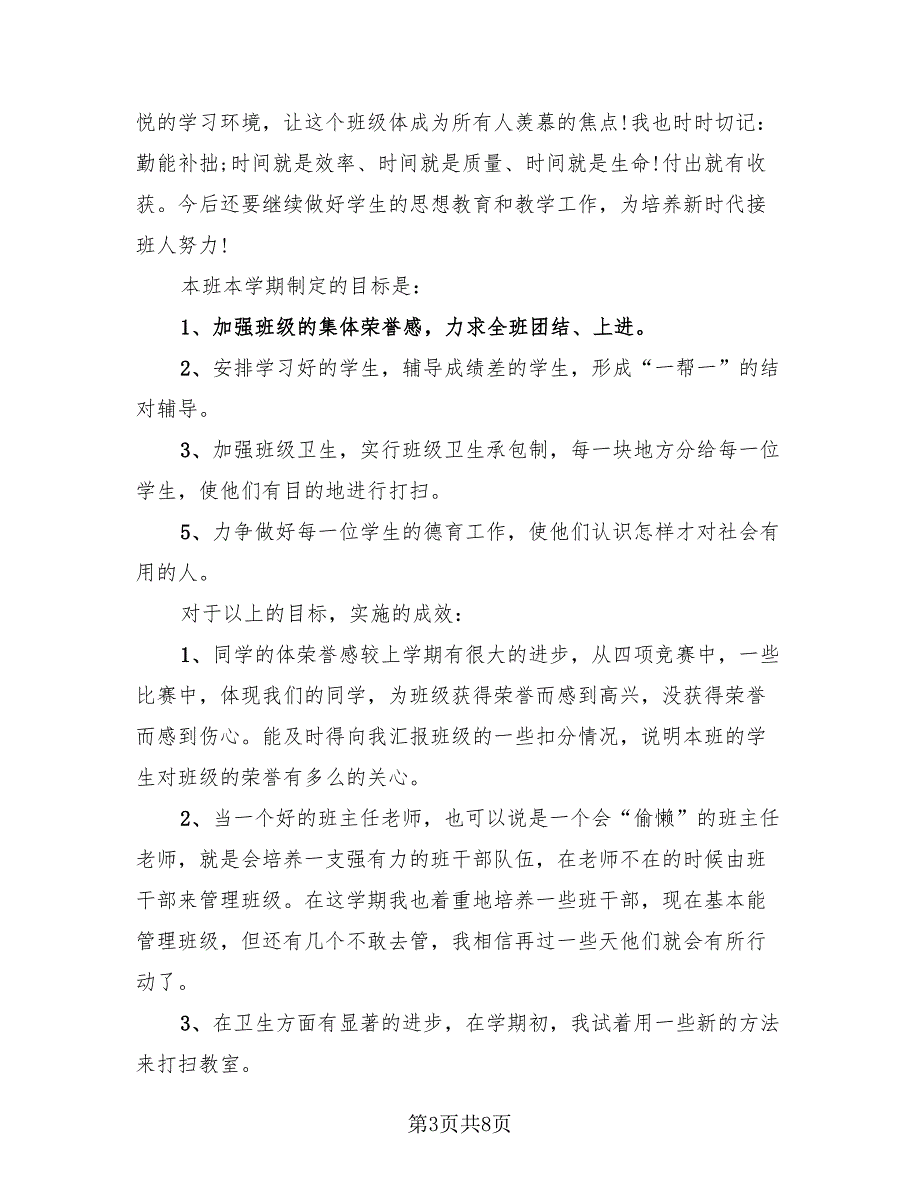 悦的学习环境，让这个班级体成为所有人羡慕的焦点!我也时时切记：
勤能补拙;时间就是效率、时间就是质量、时间就是生命!付出就有收
获。今后还要继续做好学生的思想教育和教学工作，为培养新时代接
班人努力!
本班本学期制定的目标是：
1、加强班级的集体荣誉感，力求全班团结、上进。
2、安排学习好的学生，辅导成绩差的学生，形成“一帮一”的结
对辅导。
3、加强班级卫生，实行班级卫生承包制，每一块地方分给每一位
学生，使他们有目的地进行打扫。
5、力争做好每一位学生的德育工作，使他们认识怎样才对社会有
用的人。
对于以上的目标，实施的成效：
1、同学的体荣誉感较上学期有很大的进步，从四项竞赛中，一些
比赛中，体现我们的同学，为班级获得荣誉而感到高兴，没获得荣誉
而感到伤心。能及时得向我汇报班级的一些扣分情况，说明本班的学
生对班级的荣誉有多么的关心。
2、当一个好的班主任老师，也可以说是一个会“偷懒”的班主任
老师，就是会培养一支强有力的班干部队伍，在老师不在的时候由班
干部来管理班级。在这学期我也着重地培养一些班干部，现在基本能
管理班级，但还有几个不敢去管，我相信再过一些天他们就会有所行
动了。
3、在卫生方面有显著的进步，在学期初，我试着用一些新的方法
来打扫教室。
第3页共8页